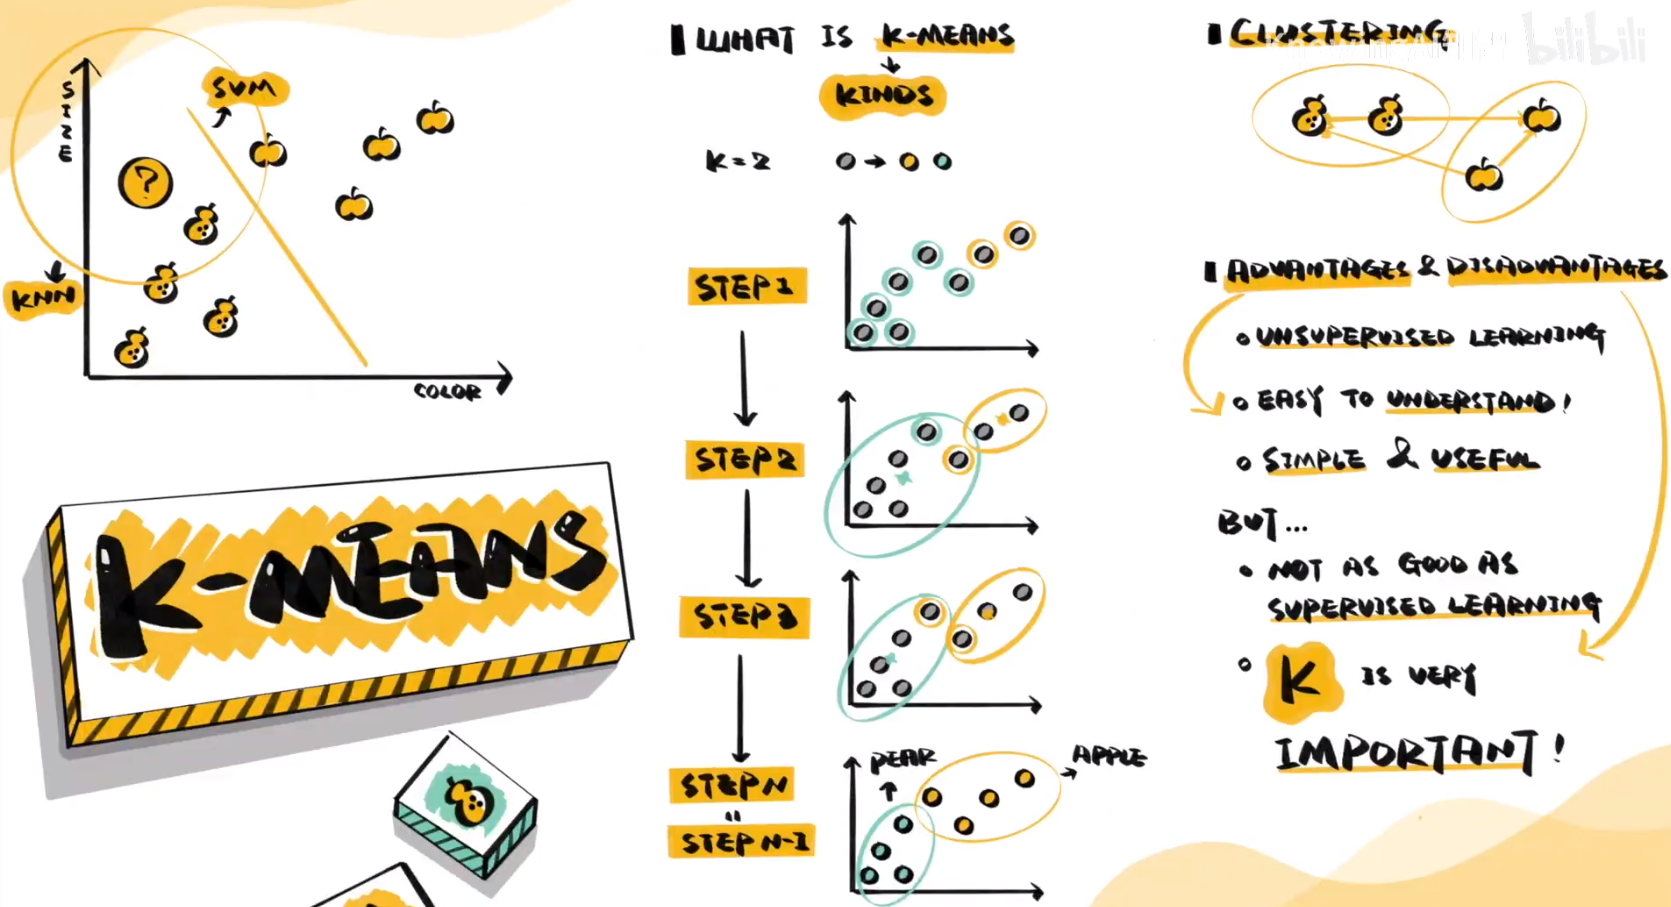 SIZE
SVM
?
KNN
COLOR
K-MEANS
WHAT IS K-MEANS
KINDS
K=2
STEP1
STEP2
STEP3
STEPN
"
STEPN-1
PEAR
APPLE
CLUSTERING
bilibili
ADVANTAGES & DISADVANTAGES
UNSUPERVISED LEARNING
EASY TO UNDERSTAND!
SIMPLE & USEFUL
BUT...
NOT AS GOOD AS
SUPERVISED LEARNING
K IS VERY
IMPORTANT!